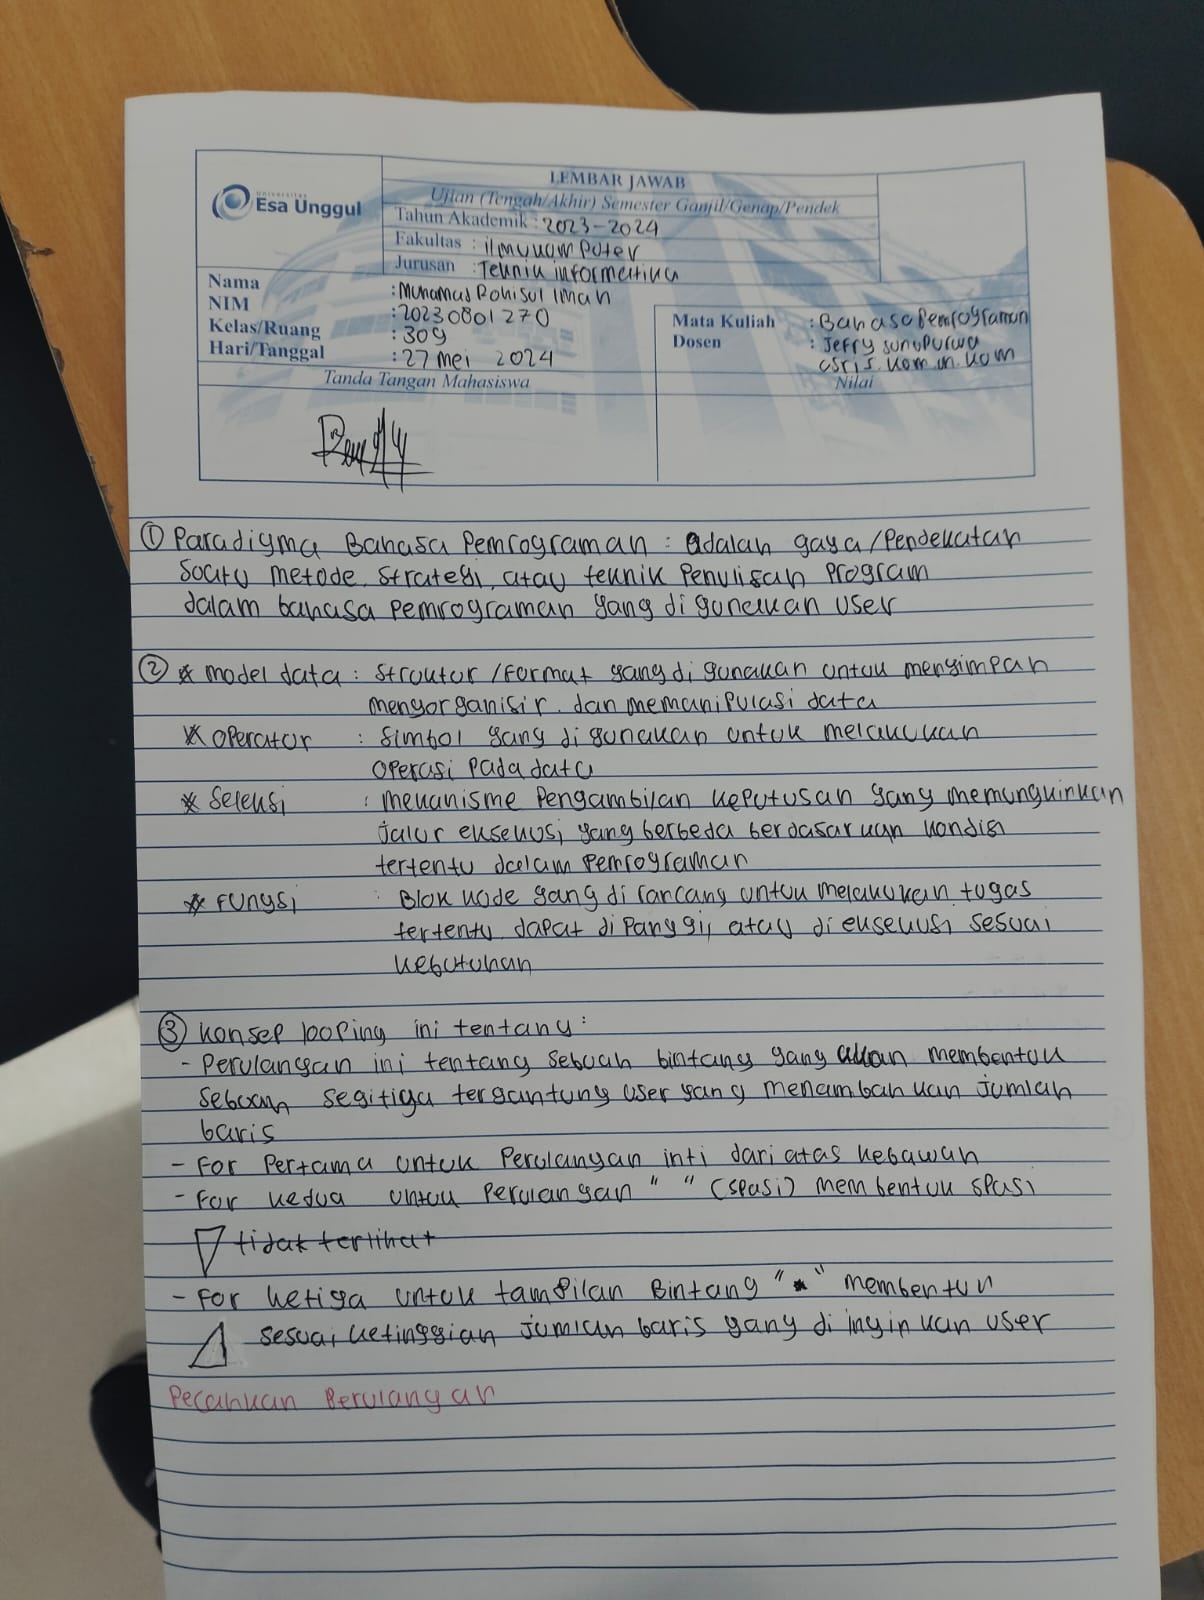 LEMBAR JAWAB
Universitas
Esa Unggul
Ujian (Tengah/Akhir) Semester Ganjil/Genap/Pendek
Tahun Akademik : 2023-2024
Fakultas : ilmu komputer
Jurusan : Teknik informatika
Nama : Muhamad Rohisul Iman
NIM : 20230801270
Kelas/Ruang : 309
Hari/Tanggal : 27 mei 2024
Mata Kuliah : Bahasa Pemrograman
Dosen : Jefry sunupurwa
asri S.kom.m.kom
Tanda Tangan Mahasiswa
Nilai
① Paradigma Bahasa Pemrograman : adalah gaya/Pendekatan
suatu metode, strategi, atau teknik Penulisan Program
dalam bahasa Pemrograman yang di gunakan user
② * model data : Struktur / format yang di gunakan untuk menyimpan
mengorganisir. dan memanipulasi data
* operator : Simbol yang di gunakan untuk melakukan
operasi pada data
* Seleksi : mekanisme Pengambilan keputusan yang memungkinkan
jalur eksekusi yang berbeda berdasarkan kondisi
tertentu dalam Pemrograman
* fungsi : Blok kode yang di rancang untuk melakukan tugas
tertentu dapat di Panggil atau di eksekusi sesuai
kebutuhan
③ konsep looping ini tentang :
- Perulangan ini tentang sebuah bintang yang akan membentuk
sebuah segitiga tergantung user yang menambahkan jumlah
baris
- For Pertama untuk Perulangan inti dari atas kebawah
- For kedua untuk Perulangan " " (spasi) membentuk spasi
tidak terlihat
- For ketiga untuk tampilan Bintang "*" membentuk
sesuai ketinggian jumlah baris yang di inginkan user
Pecahkan Berulangan